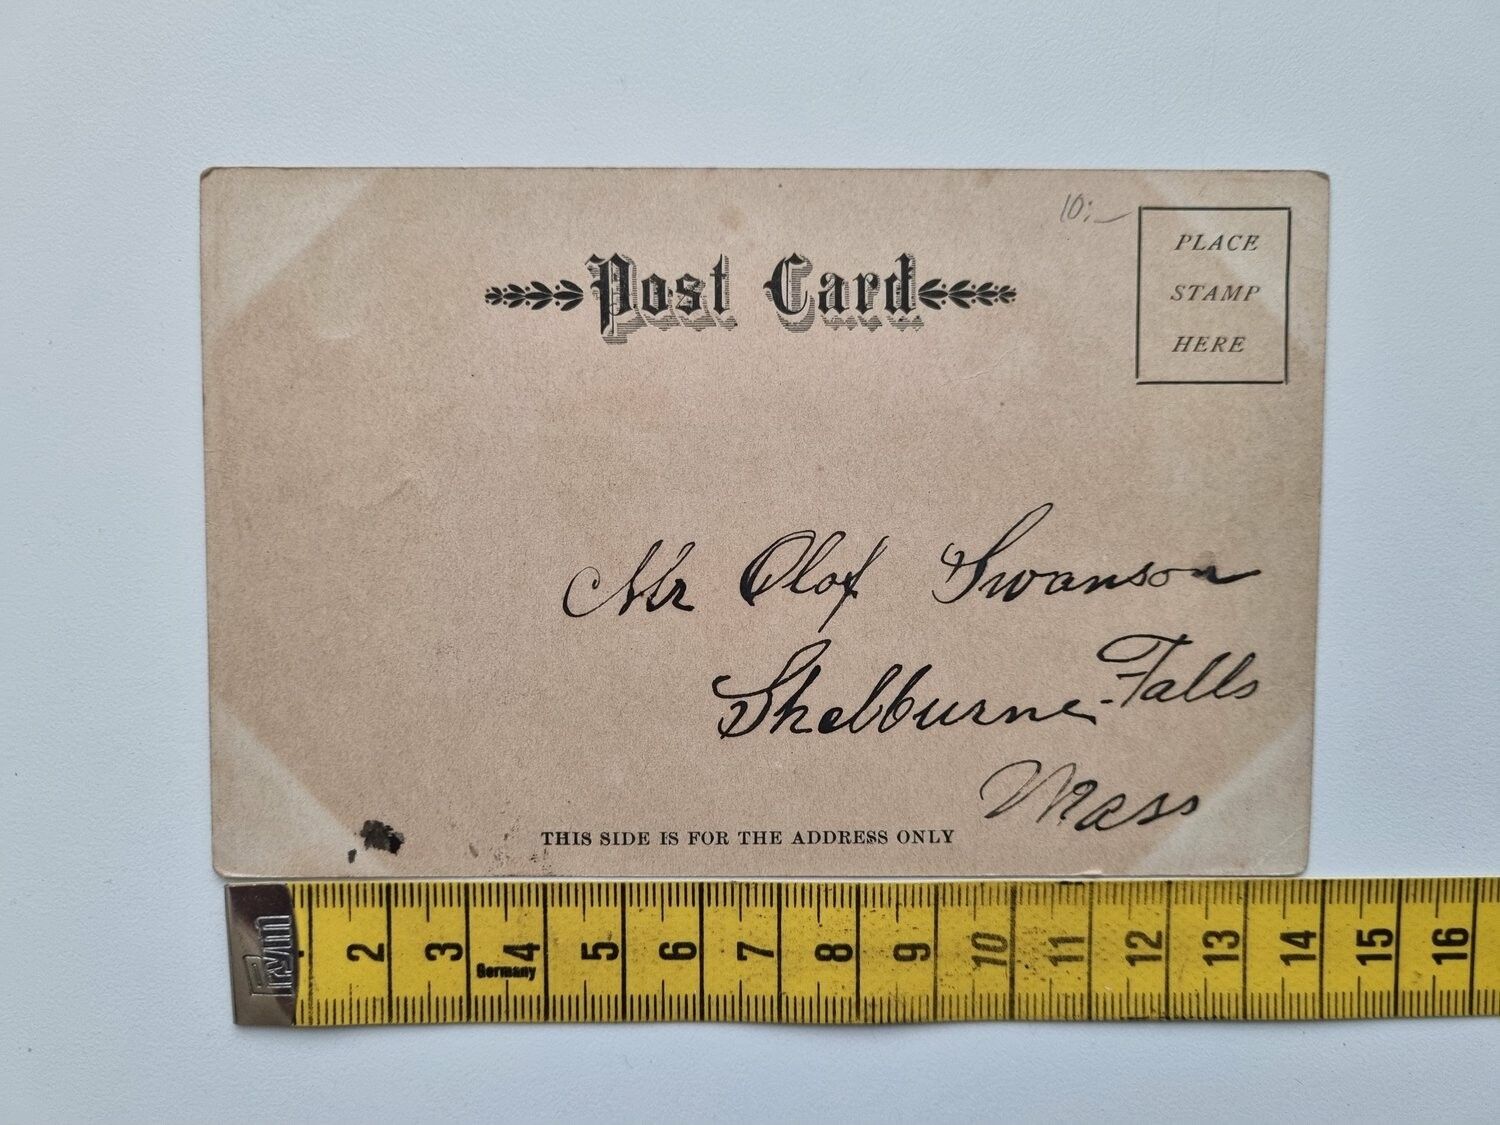 10:-
Post Card
PLACE
STAMP
HERE
Mr Olof Swanson
Shelburne-Falls
Mass
THIS SIDE IS FOR THE ADDRESS ONLY
Prym
2 3 4 5 6 7 8 9 10 11 12 13 14 15 16
Germany